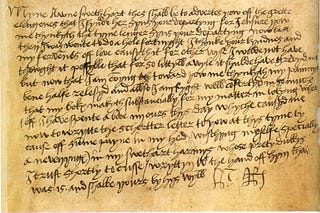 Myne awne swethart this shall be to advertes you off the grette
elengenes that I fynde her syns your departyng for I ensure you
me thynkyth the tyme lenger syns your departyng now last
then I was wonte to do a hole fortnyght I thynke your kyndnes and
my fervens of love causyth it for otherwyse I wolde not have
thought it possyble that for so littyll a wyle it shulde have grevyd me
but now that I am comyng toward you me thynkyth my painnys
bene halfe relesyd and allso I am ryght well comfortyd
that my boke makyth substantially for my matter in lokyng wher
off I have spente a bove ours this day whyche causyd me
now to wrytte the schortter letter to you at thys tyme by
cause off summe payne in my hed wysshyng my selfe specially
an evennyng in my swethart harmys whose pretty dukkys
I trust shortly to cusse wryttyn with the hand off hym that
was is and shalbe yours by hys wyll H R